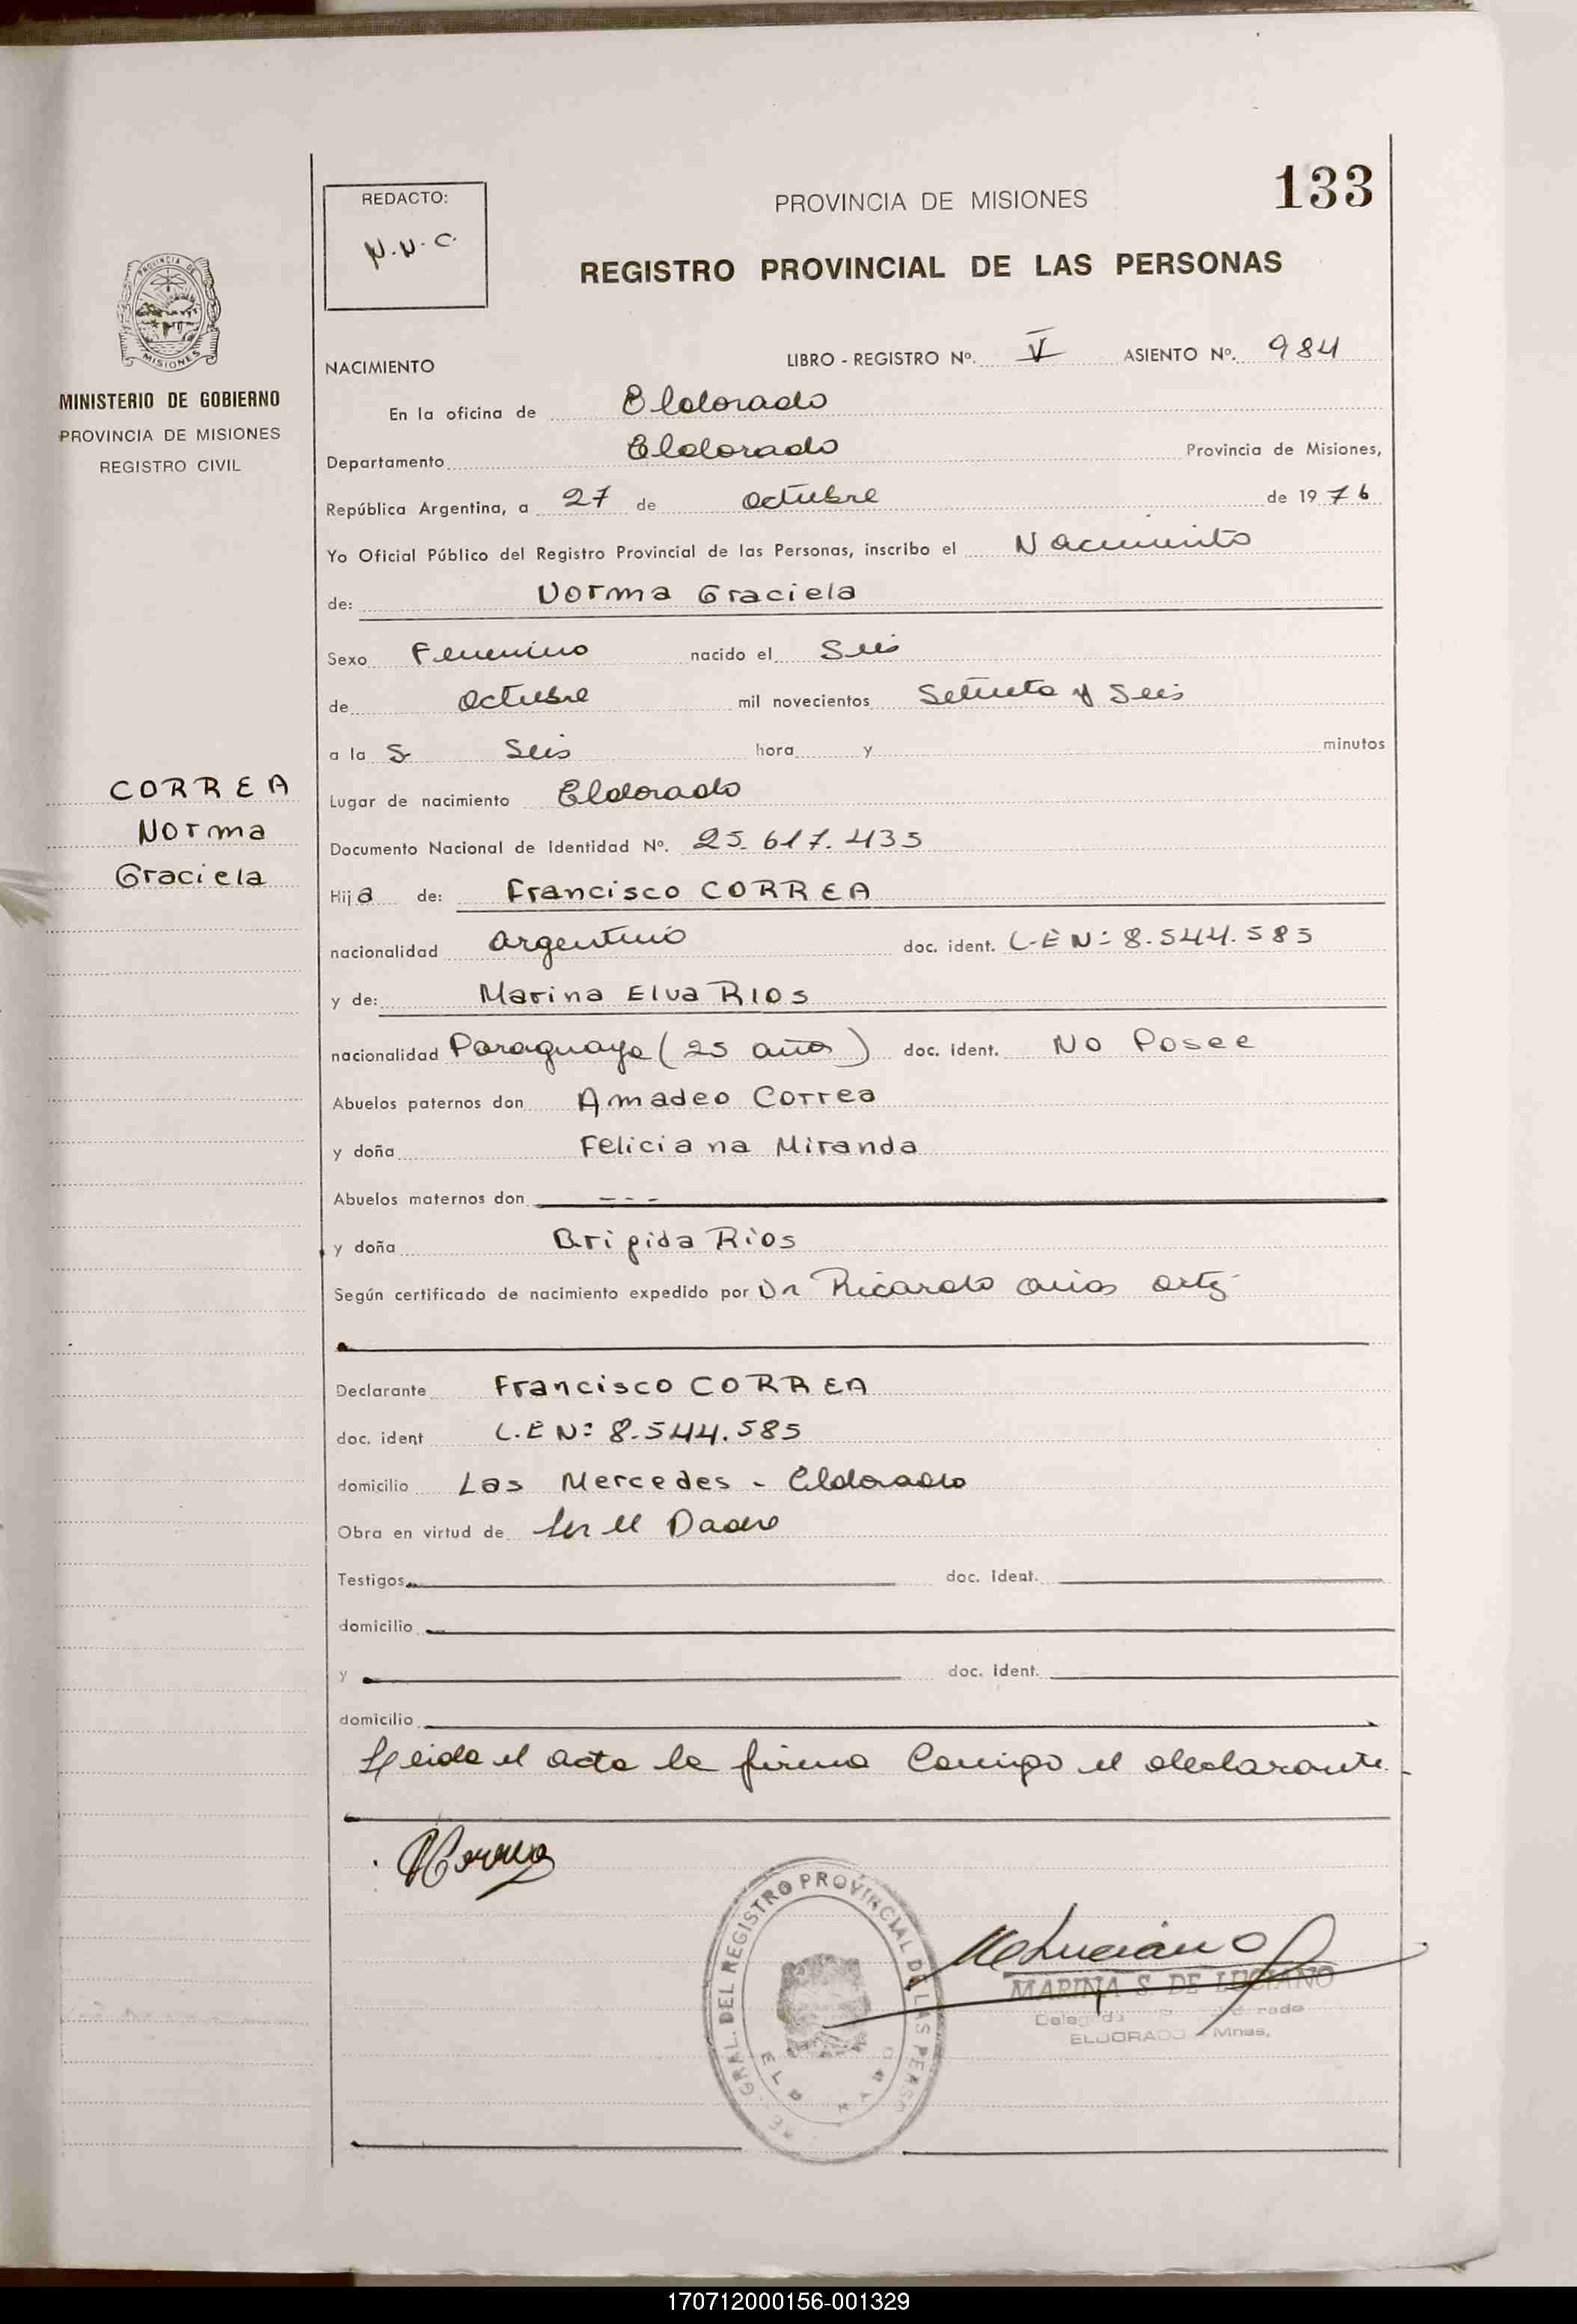 133
REDACTO:
N.N.C.
PROVINCIA DE MISIONES
REGISTRO PROVINCIAL DE LAS PERSONAS
PROVINCIA DE
MISIONES
MINISTERIO DE GOBIERNO
PROVINCIA DE MISIONES
REGISTRO CIVIL
NACIMIENTO LIBRO - REGISTRO Nº. V ASIENTO Nº. 984
En la oficina de Eldorado
Departamento Eldorado Provincia de Misiones,
República Argentina, a 27 de octubre de 19 76
Yo Oficial Público del Registro Provincial de las Personas, inscribo el Nacimiento
de: Norma Graciela
Sexo Femenino nacido el Seis
de octubre mil novecientos Setenta y Seis
a la s Seis hora y minutos
CORREA
Norma
Graciela
Lugar de nacimiento Eldorado
Documento Nacional de Identidad Nº. 25.617.435
Hija de: Francisco CORREA
nacionalidad argentino doc. ident. L.E Nº 8.544.585
y de: Marina Elva RIOS
nacionalidad Paraguaya (25 años) doc. ident. No Posee
Abuelos paternos don Amadeo Correa
y doña Feliciana Miranda
Abuelos maternos don - - -
y doña Brigida Rios
Según certificado de nacimiento expedido por Dr Ricardo arias ortz
Declarante Francisco CORREA
doc. ident L.E Nº 8.544.585
domicilio Las Mercedes - Eldorado
Obra en virtud de Ser el Padre
Testigos doc. ident.
domicilio
y doc. ident.
domicilio
Leida el acta la firma Conmigo el declarante.
GRAL. DEL REGISTRO PROVINCIAL DE LAS PERSO
MARINA S. DE LUCIANO
ELDORADO - Mnes.
170712000156-001329